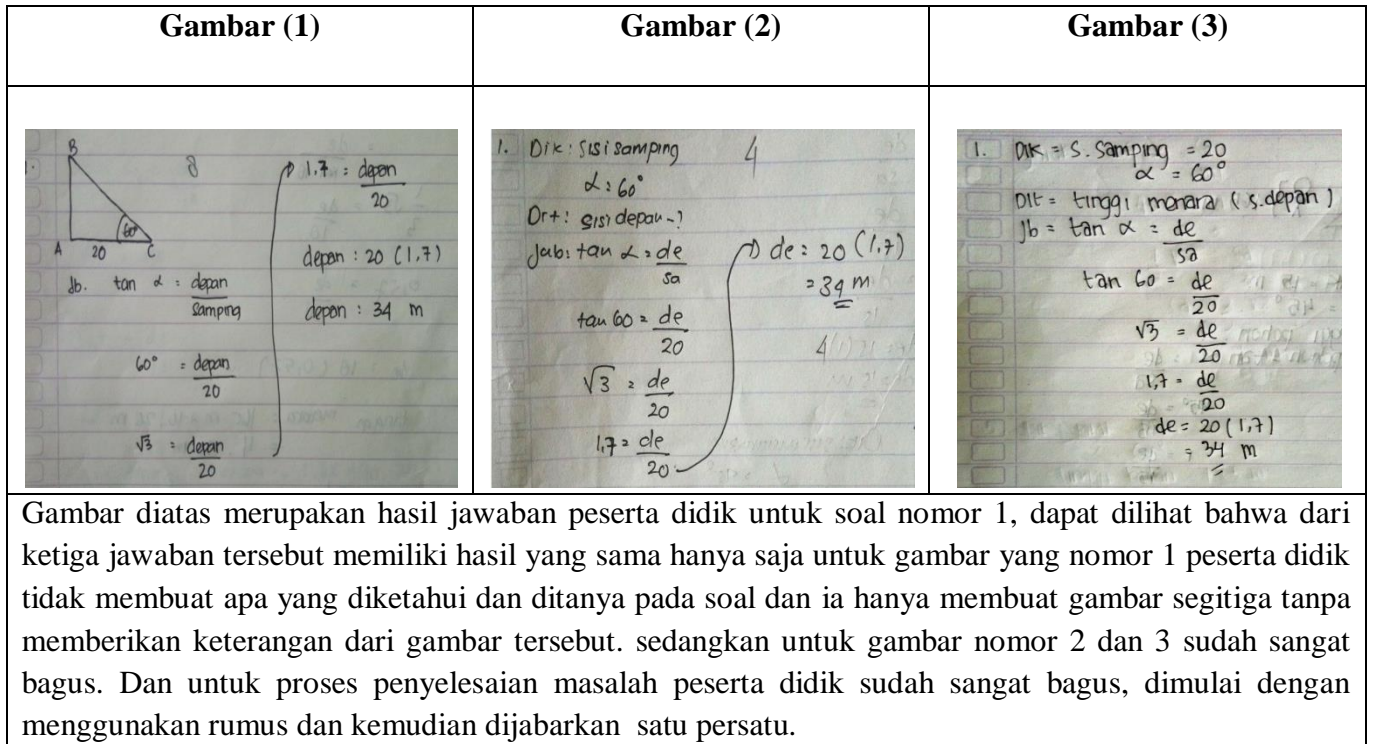 Gambar (1)
Gambar (2)
Gambar (3)
B
A 20 C
60°
Jb. tan α = depan
samping
60° = depan
20
√3 = depan
20
1,7 = depan
20
depan : 20 (1,7)
depan : 34 m
1. Dik : Sisi samping
α = 60°
Dit : sisi depan - ?
Jab : tan α = de
sa
tan 60 = de
20
√3 = de
20
1,7 = de
20
de = 20 (1,7)
= 34 m
4
4
1. Dik = S. Samping = 20
α = 60°
Dit = tinggi menara (s.depan)
Jb = tan α = de
sa
tan 60 = de
20
√3 = de
20
1,7 = de
20
de = 20 (1,7)
= 34 m
Gambar diatas merupakan hasil jawaban peserta didik untuk soal nomor 1, dapat dilihat bahwa dari
ketiga jawaban tersebut memiliki hasil yang sama hanya saja untuk gambar yang nomor 1 peserta didik
tidak membuat apa yang diketahui dan ditanya pada soal dan ia hanya membuat gambar segitiga tanpa
memberikan keterangan dari gambar tersebut. sedangkan untuk gambar nomor 2 dan 3 sudah sangat
bagus. Dan untuk proses penyelesaian masalah peserta didik sudah sangat bagus, dimulai dengan
menggunakan rumus dan kemudian dijabarkan satu persatu.